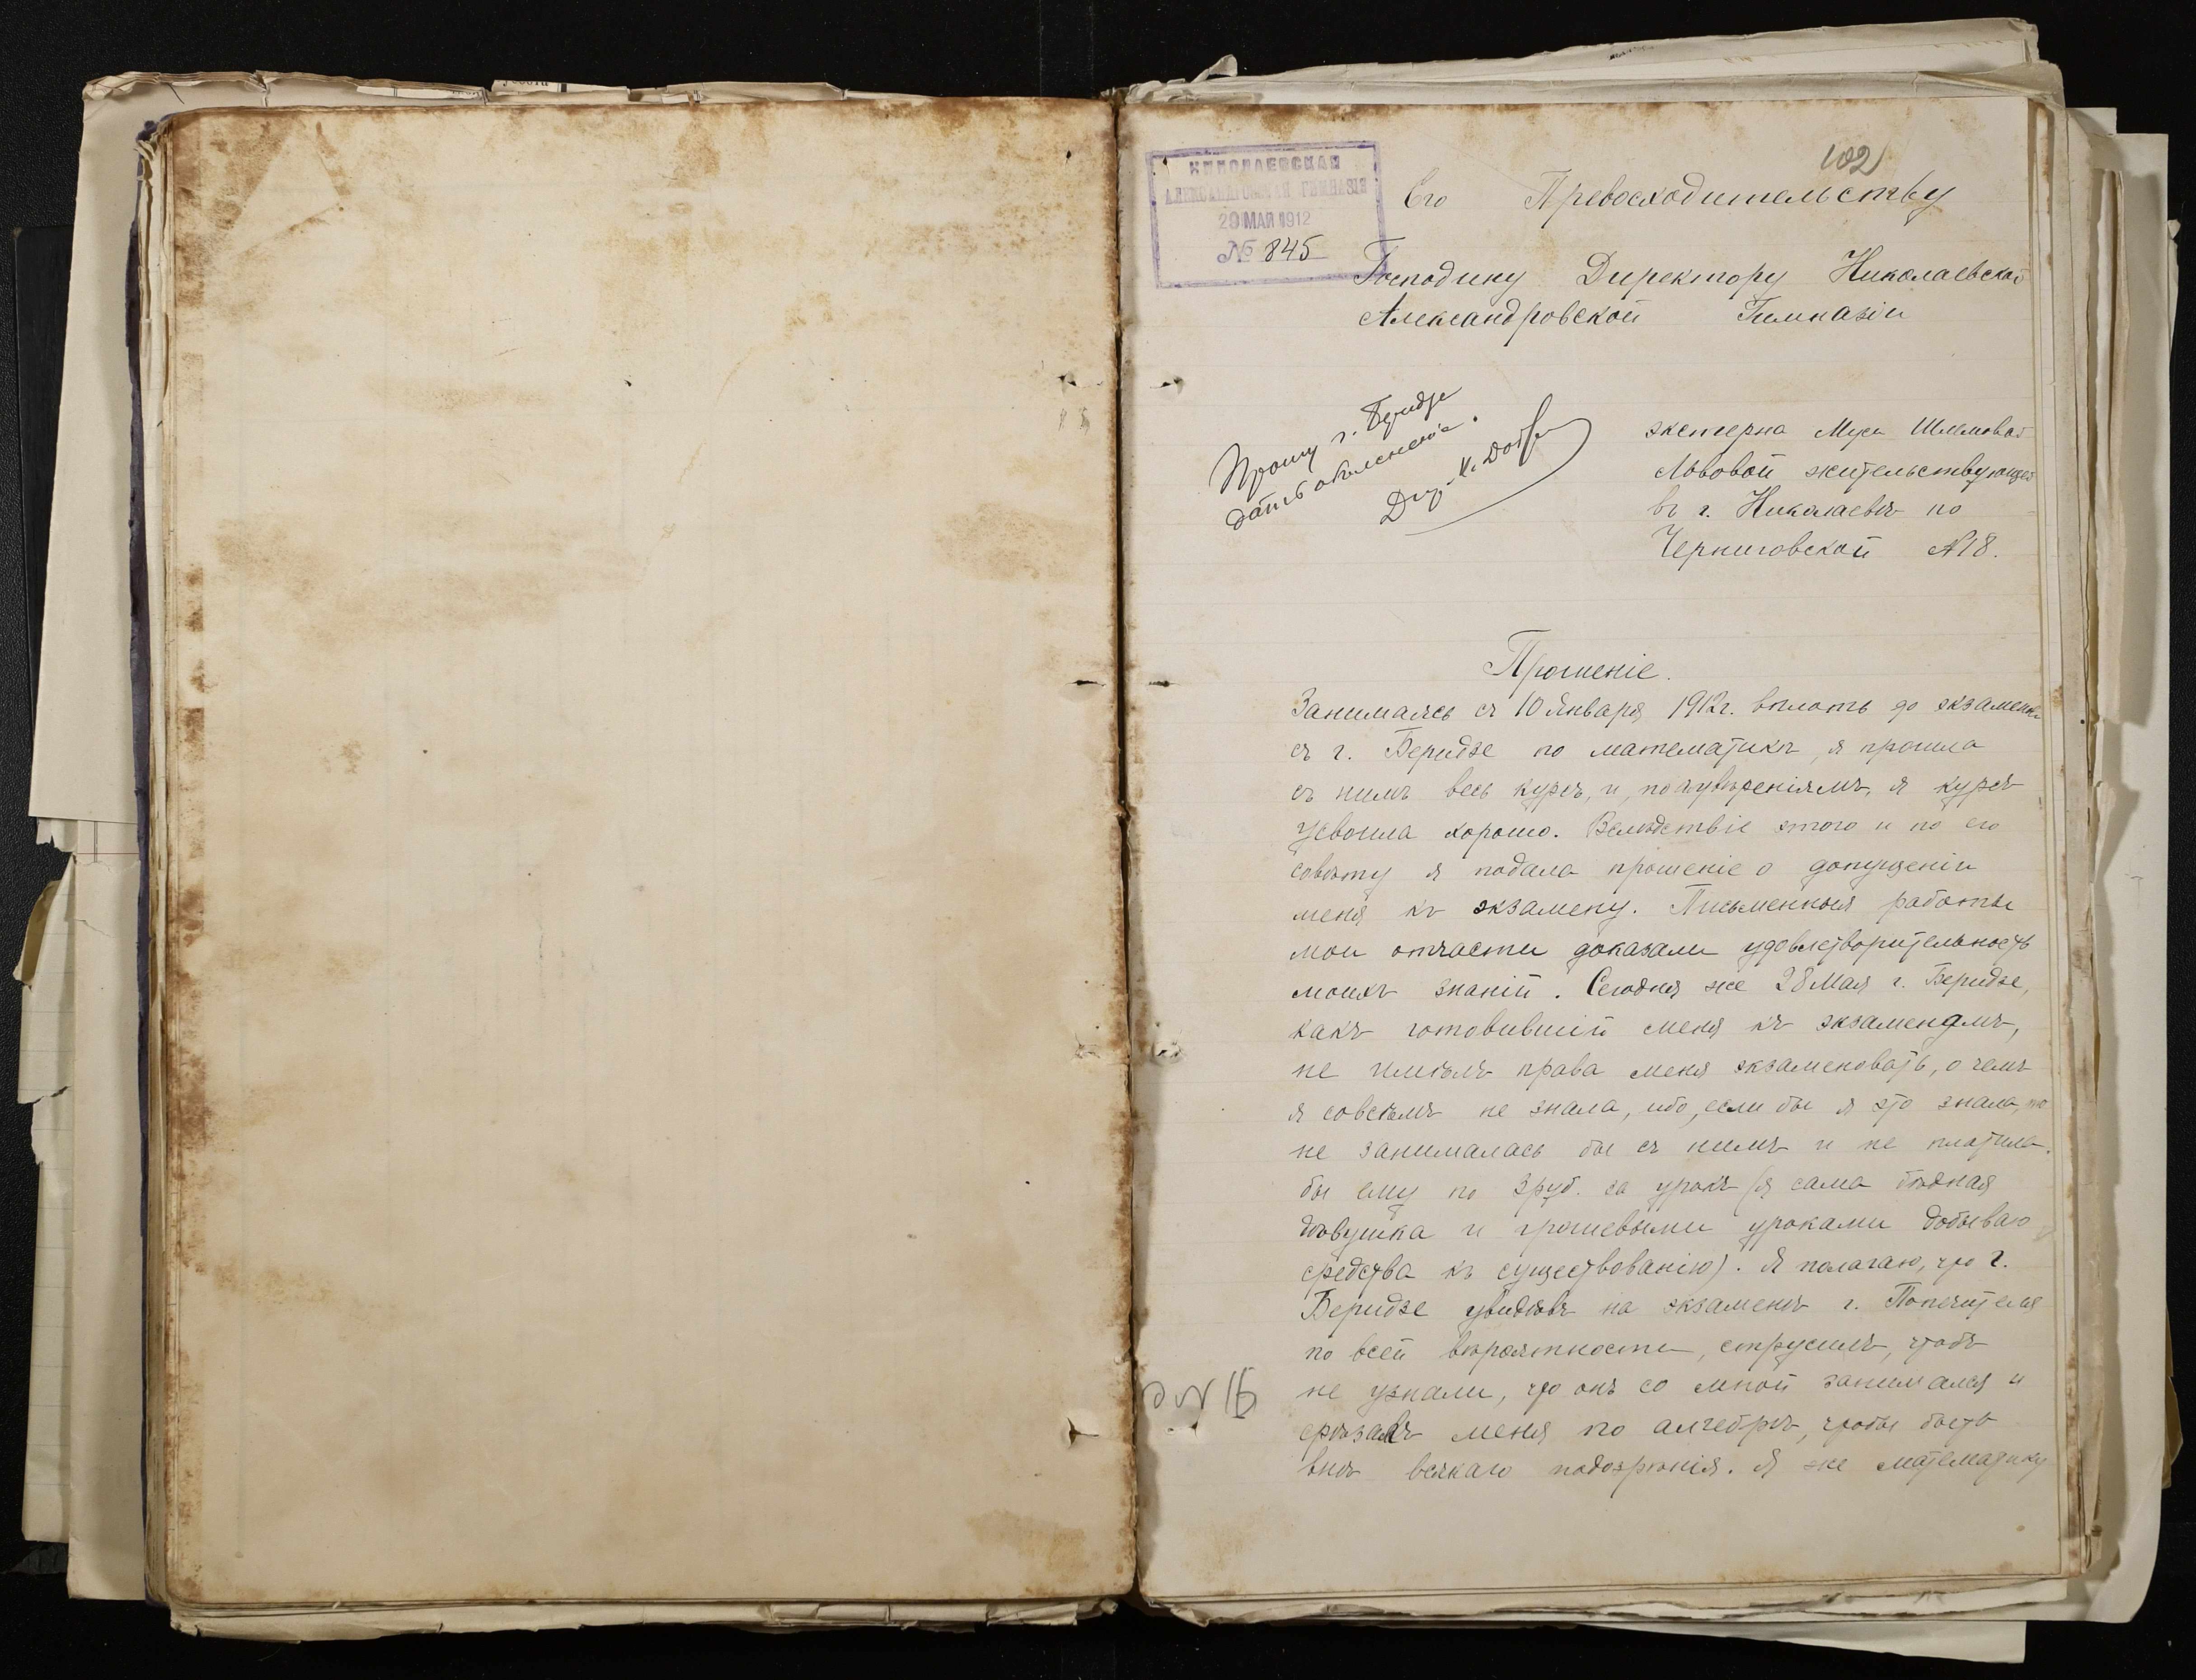 102
НИКОЛАЕВСКАЯ
АЛЕКСАНДРОВСКАЯ ГИМНАЗІЯ
29 МАЯ 1912
№ 845
Его Превосходительству
Господину Директору Николаевской
Александровской Гимназіи
Прошу г. Беридзе
дать объясненія.
Дир.
экстерна Муси Шлемовой
Львовой жительствующей
въ г. Николаевѣ по
Черниговской №18.
Прошеніе.
Занимаясь съ 10 Января 1912г. вплоть до экзамена
съ г. Беридзе по математикѣ, я прошла
съ нимъ весь курсъ, и, по его увѣреніямъ, я курсъ
усвоила хорошо. Вслѣдствіе этого и по его
совѣту я подала прошеніе о допущеніи
меня къ экзамену. Письменныя работы
мои отчасти доказали удовлетворительность
моихъ знаній. Сегодня же 28 Мая г. Беридзе,
какъ готовившій меня къ экзаменамъ,
не имѣлъ права меня экзаменовать, о чемъ
я совсѣмъ не знала, ибо, если бы я это знала, то
не занималась бы съ нимъ и не платила
бы ему по 3 руб. за урокъ (я сама бѣдная
дѣвушка и грошевыми уроками добываю
средства къ существованію). Я полагаю, что г.
Беридзе увидѣвъ на экзаменѣ г. Попечителя
по всей вѣроятности, струсилъ, чтобъ
не узнали, что онъ со мной занимался и
срѣзалъ меня по алгебрѣ, чтобы быть
внѣ всякаго подозрѣнія. Я же математику